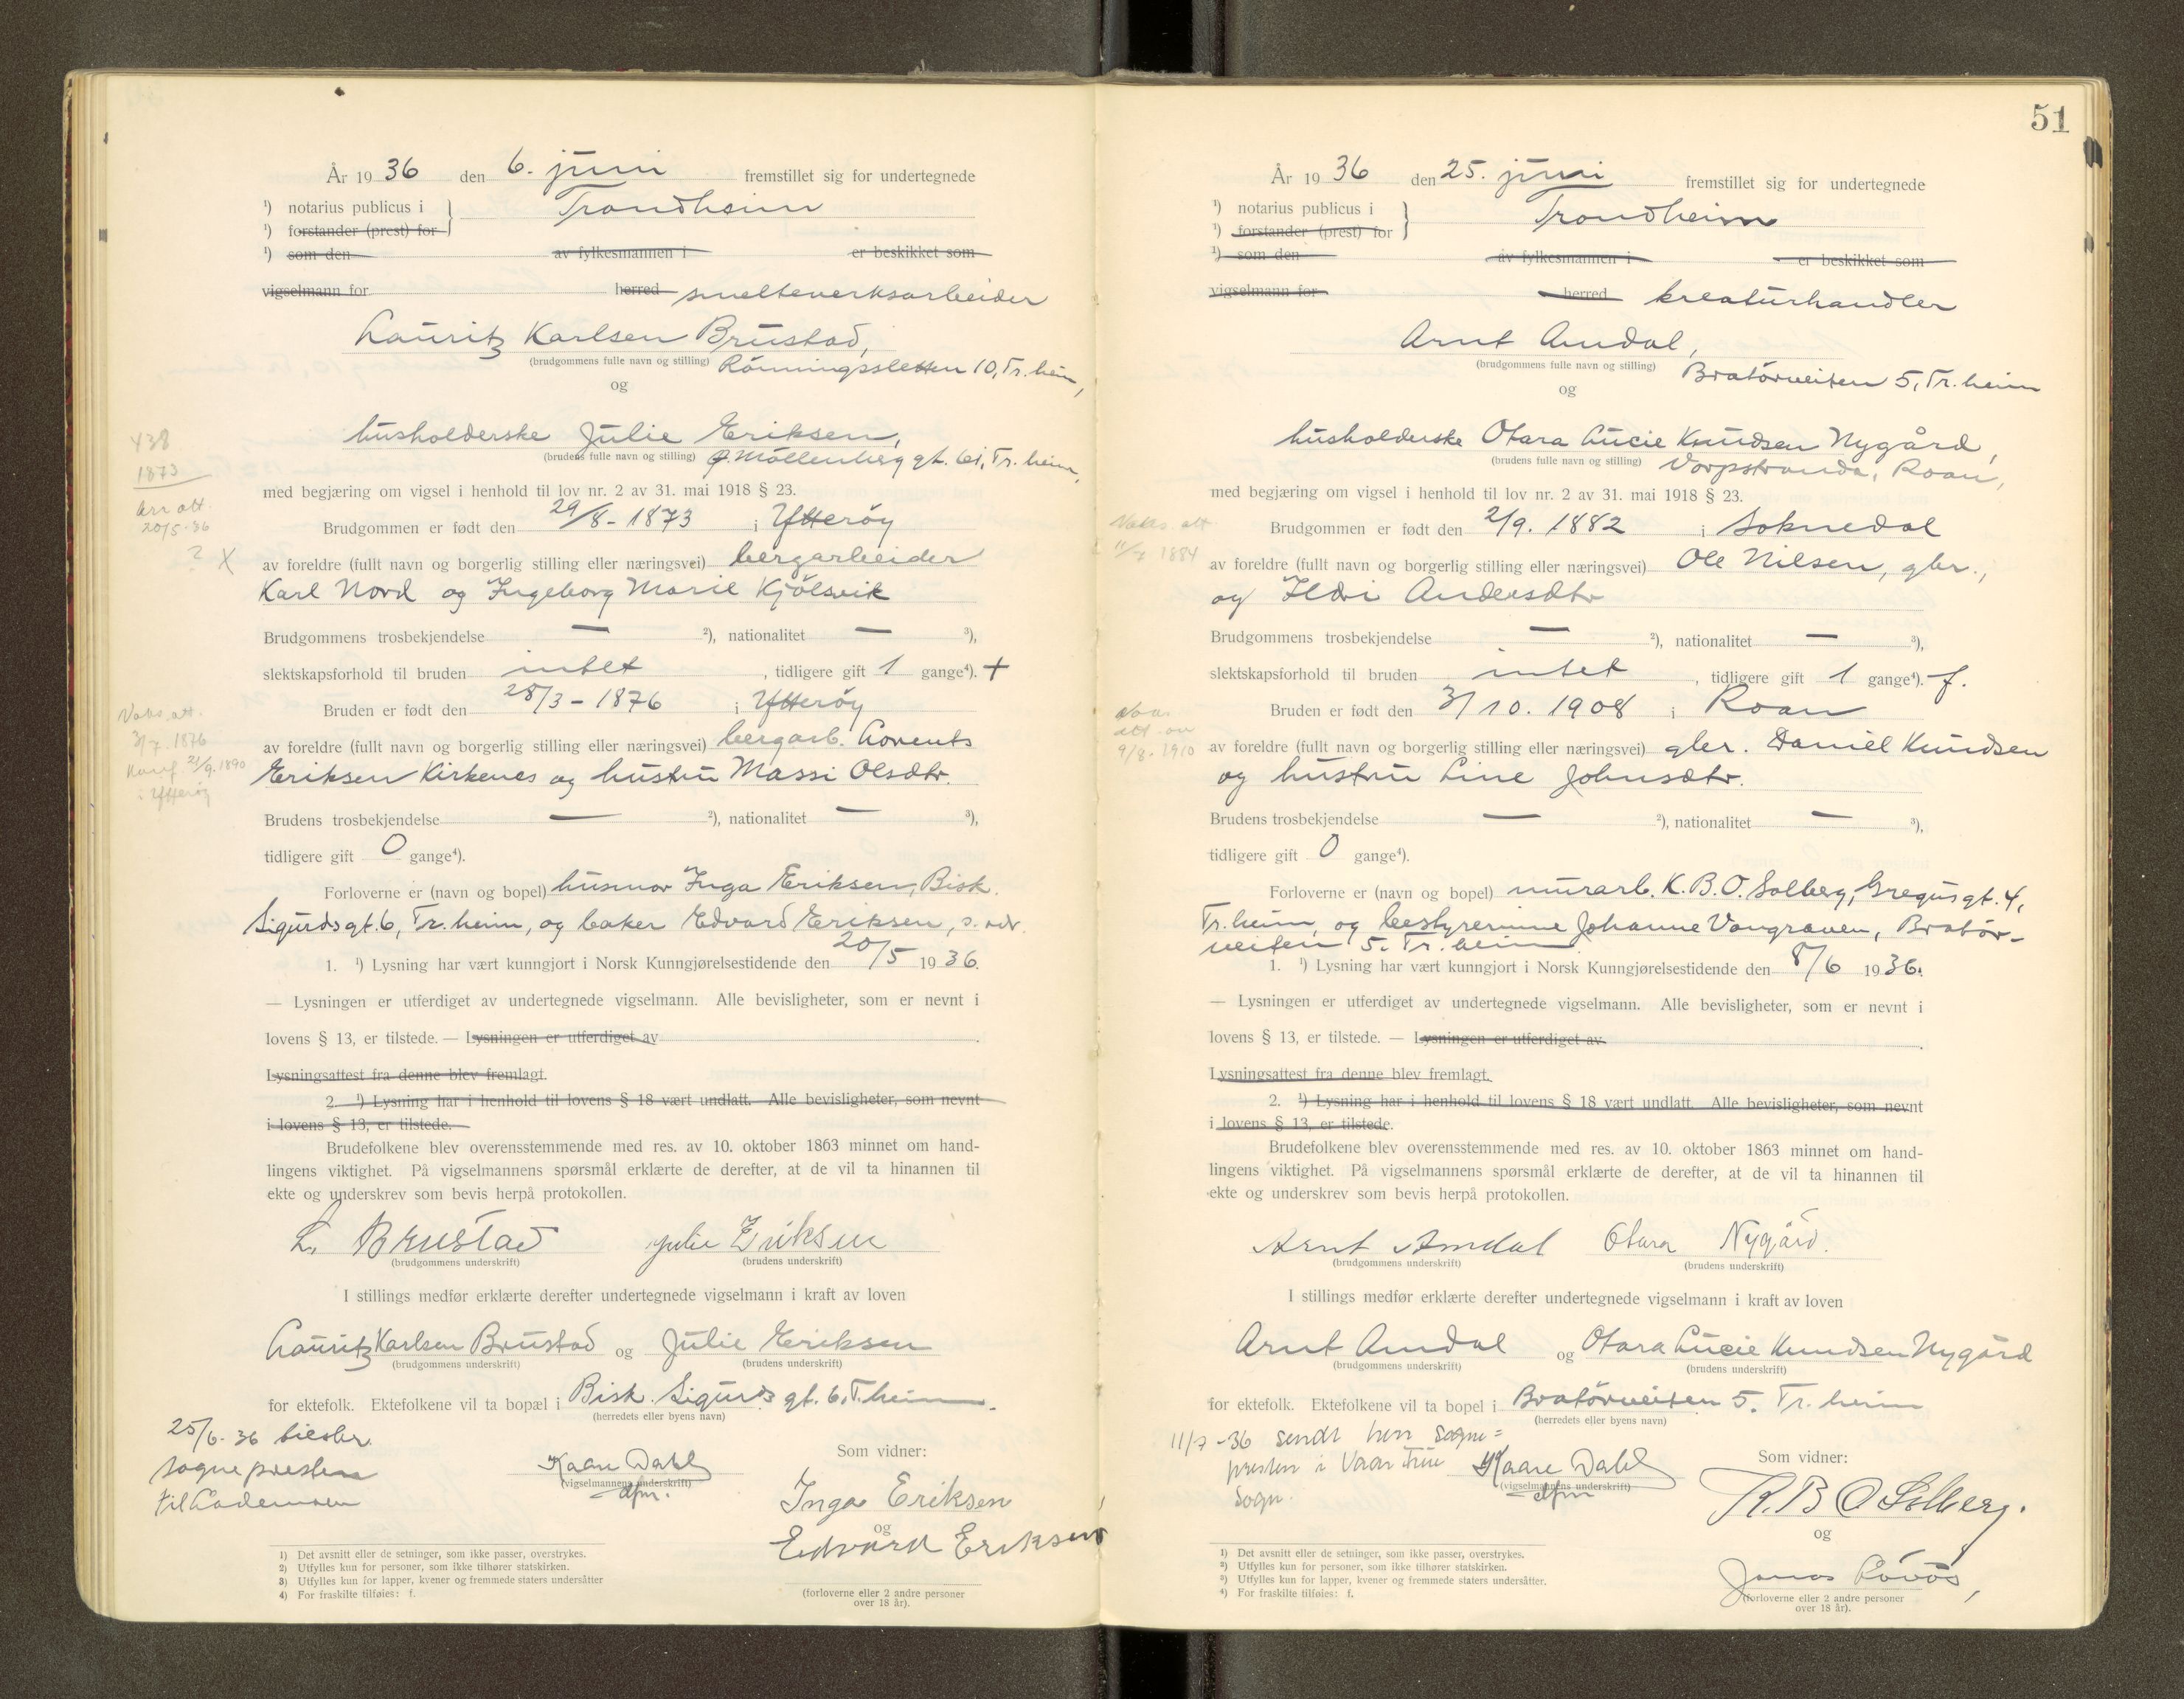 År 19 36 den 6. juni fremstillet sig for undertegnede
¹) notarius publicus i } Trondheim
¹) forstander (prest) for
¹) som den av fylkesmannen i er beskikket som
vigselmann for herred smelteverksarbeider
Lauritz Karlsen Brustad,
(brudgommens fulle navn og stilling) Rönningsletten 10, Tr.heim,
og
husholderske Julie Eriksen,
(brudens fulle navn og stilling) Möllenberg gt. 61, Tr.heim,
med begjæring om vigsel i henhold til lov nr. 2 av 31. mai 1918 § 23.
438
1873
att.
20/5-36
? X
Brudgommen er født den 29/8-1873 i Ytterøy
av foreldre (fullt navn og borgerlig stilling eller næringsvei) bergarbeider
Karl Nord og Ingeborg Marie Kjölsvik
Brudgommens trosbekjendelse — ²), nationalitet — ³),
slektskapsforhold til bruden intet , tidligere gift 1 gange⁴). +
Bruden er født den 28/3-1876 i Ytterøy
av foreldre (fullt navn og borgerlig stilling eller næringsvei) bergarb. Lorents
Eriksen Kirkenes og hustru Massi Olsdtr.
Vaks. att.
3/7 1876
Konf. 21/9.1890
i Ytterøy
Brudens trosbekjendelse — ²), nationalitet — ³),
tidligere gift 0 gange⁴).
Forloverne er (navn og bopel) husmor Inga Eriksen, Bisk.
Sigurds gt. 6, Tr.heim, og baker Edvard Eriksen, s. adr.
1. ¹) Lysning har vært kunngjort i Norsk Kunngjørelsestidende den 20/5 19 36.
— Lysningen er utferdiget av undertegnede vigselmann. Alle bevisligheter, som er nevnt i
lovens § 13, er tilstede. — Lysningen er utferdiget av
Lysningsattest fra denne blev fremlagt.
2. ¹) Lysning har i henhold til lovens § 18 vært undlatt. Alle bevisligheter, som nevnt
i lovens § 13, er tilstede.
Brudefolkene blev overensstemmende med res. av 10. oktober 1863 minnet om hand-
lingens viktighet. På vigselmannens spørsmål erklærte de derefter, at de vil ta hinannen til
ekte og underskrev som bevis herpå protokollen.
L. Brustad Julie Eriksen
(brudgommens underskrift) (brudens underskrift)
I stillings medfør erklærte derefter undertegnede vigselmann i kraft av loven
Lauritz Karlsen Brustad og Julie Eriksen
(brudgommens underskrift) (brudens underskrift)
for ektefolk. Ektefolkene vil ta bopæl i Bisk. Sigurds gt. 6, T.heim.
(herredets eller byens navn)
25/6-36
sognepresten
til Lademoen
Kaare Dahl
(vigselmannens underskrift)
dfm.
Som vidner:
Inga Eriksen
og
Edvard Eriksen
(forloverne eller 2 andre personer
over 18 år).
1) Det avsnitt eller de setninger, som ikke passer, overstrykes.
2) Utfylles kun for personer, som ikke tilhører statskirken.
3) Utfylles kun for lapper, kvener og fremmede staters undersåtter
4) For fraskilte tilføies: f.
51
År 19 36 den 25. juni fremstillet sig for undertegnede
¹) notarius publicus i } Trondheim
¹) forstander (prest) for
¹) som den av fylkesmannen i er beskikket som
vigselmann for herred kreaturhandler
Arnt Amdal,
(brudgommens fulle navn og stilling) Bratörveiten 5, Tr.heim
og
husholderske Otara Lucie Knudsen Nygård,
(brudens fulle navn og stilling) Vorpstranda, Roan,
med begjæring om vigsel i henhold til lov nr. 2 av 31. mai 1918 § 23.
Vaks. att.
11/7 1884
Brudgommen er født den 2/9. 1882 i Soknedal
av foreldre (fullt navn og borgerlig stilling eller næringsvei) Ole Nilsen, gbr.,
og Ildri Andersdtr
Brudgommens trosbekjendelse — ²), nationalitet — ³),
slektskapsforhold til bruden intet , tidligere gift 1 gange⁴). f.
Bruden er født den 3/10. 1908 i Roan
Vaks.
att. om
9/8-1910
av foreldre (fullt navn og borgerlig stilling eller næringsvei) gbr. Daniel Knudsen
og hustru Line Johnsdtr.
Brudens trosbekjendelse — ²), nationalitet — ³),
tidligere gift 0 gange⁴).
Forloverne er (navn og bopel) murarb. K.B.O. Solberg, Gregus gt. 4,
Tr.heim, og bestyrerinne Johanne Vongraven, Bratör-
veiten 5. Tr.heim
1. ¹) Lysning har vært kunngjort i Norsk Kunngjørelsestidende den 8/6 19 36.
— Lysningen er utferdiget av undertegnede vigselmann. Alle bevisligheter, som er nevnt i
lovens § 13, er tilstede. — Lysningen er utferdiget av
Lysningsattest fra denne blev fremlagt.
2. ¹) Lysning har i henhold til lovens § 18 vært undlatt. Alle bevisligheter, som nevnt
i lovens § 13, er tilstede.
Brudefolkene blev overensstemmende med res. av 10. oktober 1863 minnet om hand-
lingens viktighet. På vigselmannens spørsmål erklærte de derefter, at de vil ta hinannen til
ekte og underskrev som bevis herpå protokollen.
Arnt Amdal Otara Nygård.
(brudgommens underskrift) (brudens underskrift)
I stillings medfør erklærte derefter undertegnede vigselmann i kraft av loven
Arnt Amdal og Otara Lucie Knudsen Nygård
(brudgommens underskrift) (brudens underskrift)
for ektefolk. Ektefolkene vil ta bopel i Bratörveiten 5. Tr.heim
(herredets eller byens navn)
11/7-36 sendt herr sogne=
presten i Vaar Frue
Sogn.
Kaare Dahl
(vigselmannens underskrift)
dfm
Som vidner:
K.B.O Solberg.
og
Jonas
(forloverne eller 2 andre personer
over 18 år).
¹) Det avsnitt eller de setninger, som ikke passer, overstrykes.
²) Utfylles kun for personer, som ikke tilhører statskirken.
³) Utfylles kun for lapper, kvener og fremmede staters undersåtter.
⁴) For fraskilte tilføies: f.